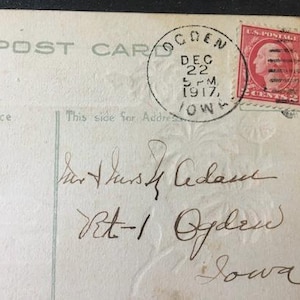 POST CARD
OGDEN
DEC
22
5 PM
1917
IOWA
U.S. POSTAGE
2 CENTS 2
ce
This side for Address
Mr & Mrs H Adam
Rt-1 Ogden
Iowa